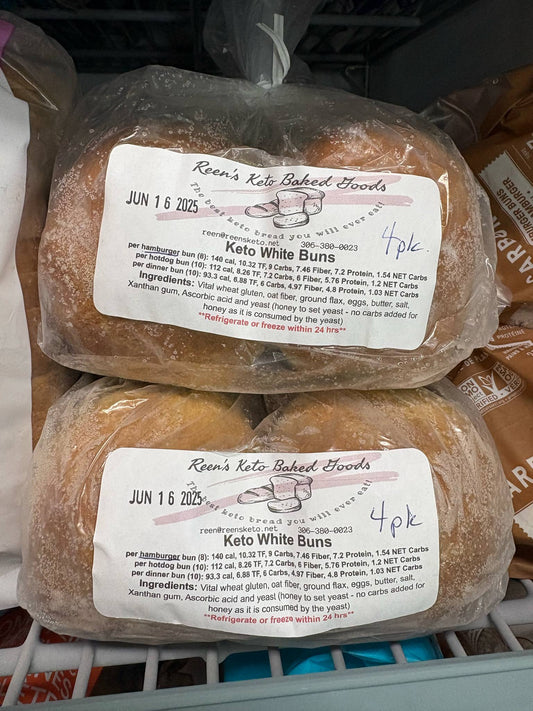 Reen's Keto Baked Goods
JUN 16 2025
The best keto bread you will ever eat!
reen@reensketo.net 306-380-0023
4pk.
Keto White Buns
per hamburger bun (8): 140 cal, 10.32 TF, 9 Carbs, 7.46 Fiber, 7.2 Protein, 1.54 NET Carbs
per hotdog bun (10): 112 cal, 8.26 TF, 7.2 Carbs, 6 Fiber, 5.76 Protein, 1.2 NET Carbs
per dinner bun (10): 93.3 cal, 6.88 TF, 6 Carbs, 4.97 Fiber, 4.8 Protein, 1.03 NET Carbs
Ingredients: Vital wheat gluten, oat fiber, ground flax, eggs, butter, salt,
Xanthan gum, Ascorbic acid and yeast (honey to set yeast - no carbs added for
honey as it is consumed by the yeast)
**Refrigerate or freeze within 24 hrs**
Reen's Keto Baked Goods
JUN 16 2025
The best keto bread you will ever eat!
reen@reensketo.net 306-380-0023
4pk
Keto White Buns
per hamburger bun (8): 140 cal, 10.32 TF, 9 Carbs, 7.46 Fiber, 7.2 Protein, 1.54 NET Carbs
per hotdog bun (10): 112 cal, 8.26 TF, 7.2 Carbs, 6 Fiber, 5.76 Protein, 1.2 NET Carbs
per dinner bun (10): 93.3 cal, 6.88 TF, 6 Carbs, 4.97 Fiber, 4.8 Protein, 1.03 NET Carbs
Ingredients: Vital wheat gluten, oat fiber, ground flax, eggs, butter, salt,
Xanthan gum, Ascorbic acid and yeast (honey to set yeast - no carbs added for
honey as it is consumed by the yeast)
**Refrigerate or freeze within 24 hrs**